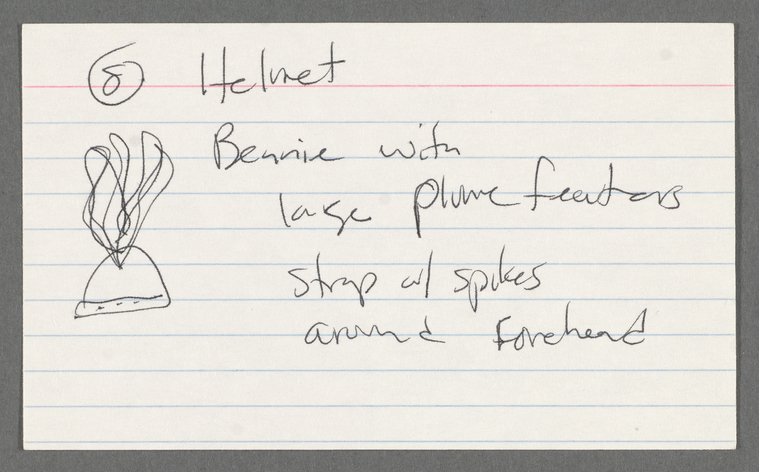 8 Helmet
Beanie with
large plume feathers
strap w/ spikes
around forehead